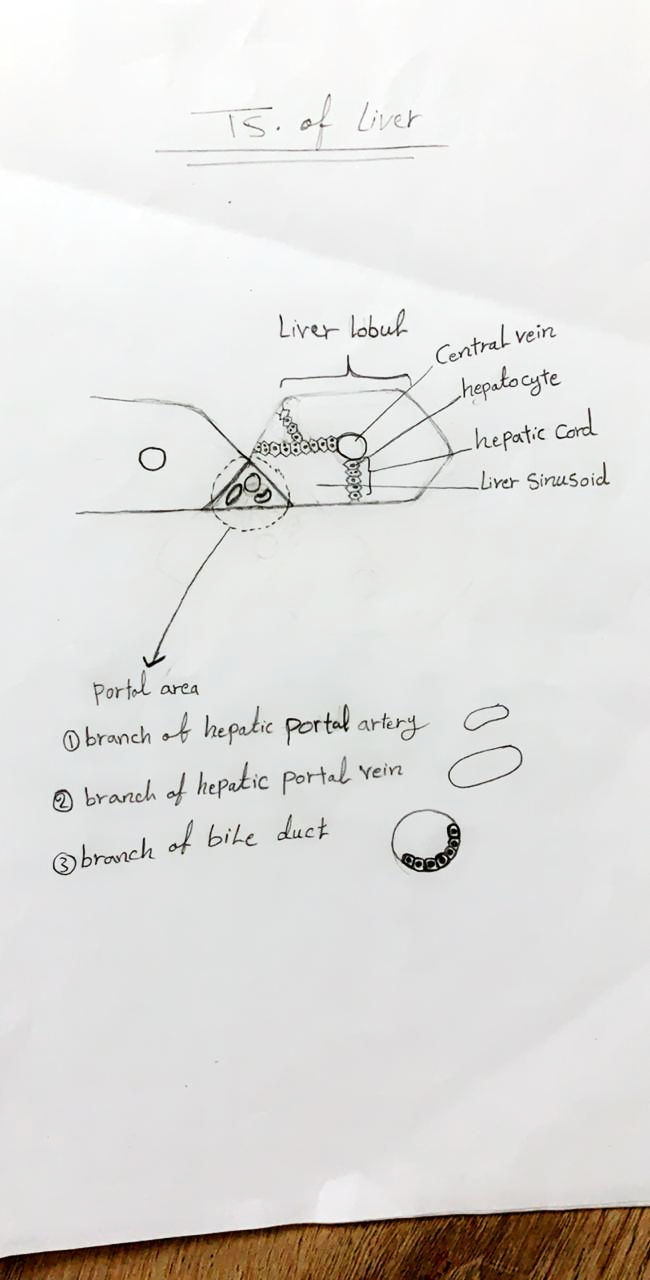 TS. of Liver
Liver lobule
Central vein
hepatocyte
hepatic cord
Liver sinusoid
portal area
① branch of hepatic portal artery
② branch of hepatic portal vein
③ branch of bile duct